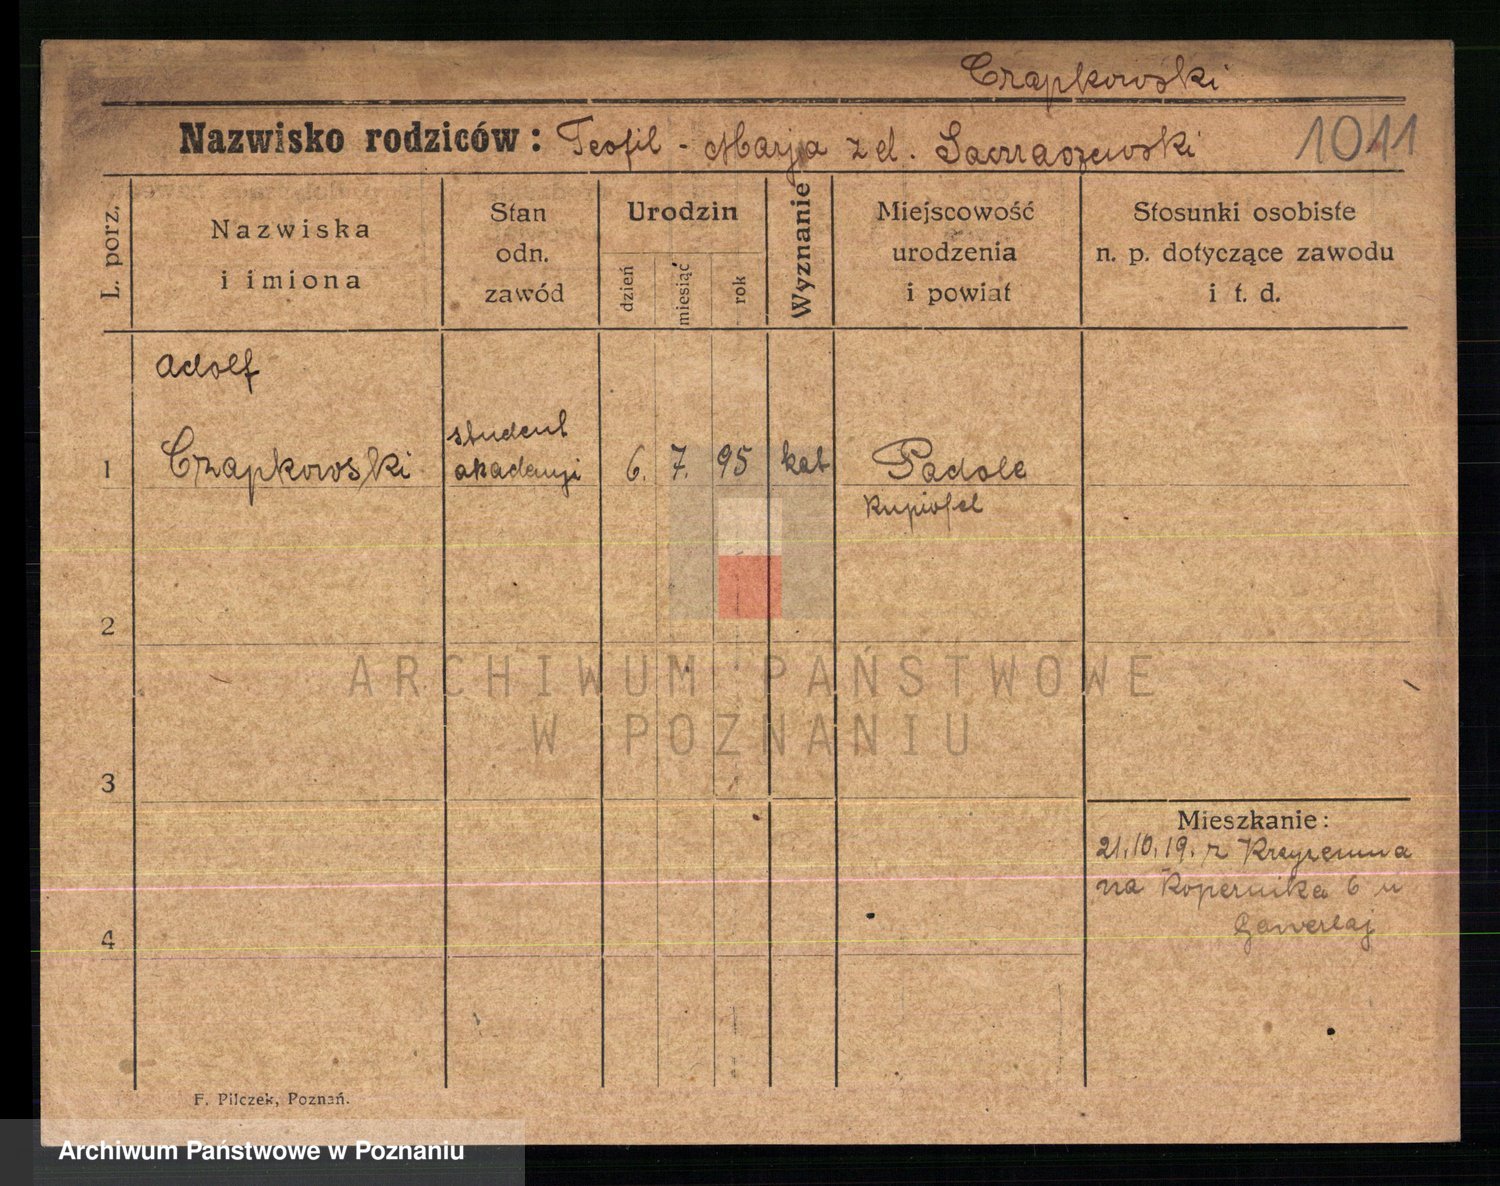 Czapkowski
Nazwisko rodziców: Teofil - Marja z d.
1011
L. porz.
Nazwiska
i imiona
Stan
odn.
zawód
Urodzin
dzień
miesiąć
rok
Wyznanie
Miejscowość
urodzenia
i powiat
Stosunki osobiste
n. p. dotyczące zawodu
i t. d.
Adolf
1 Czapkowski
student
akademji
6. 7. 95
kat
Padole
2
3
4
Mieszkanie:
21.10.19. z
na Kopernika 6 u
F. Pilczek, Poznań.
ARCHIWUM PAŃSTWOWE
W POZNANIU
Archiwum Państwowe w Poznaniu